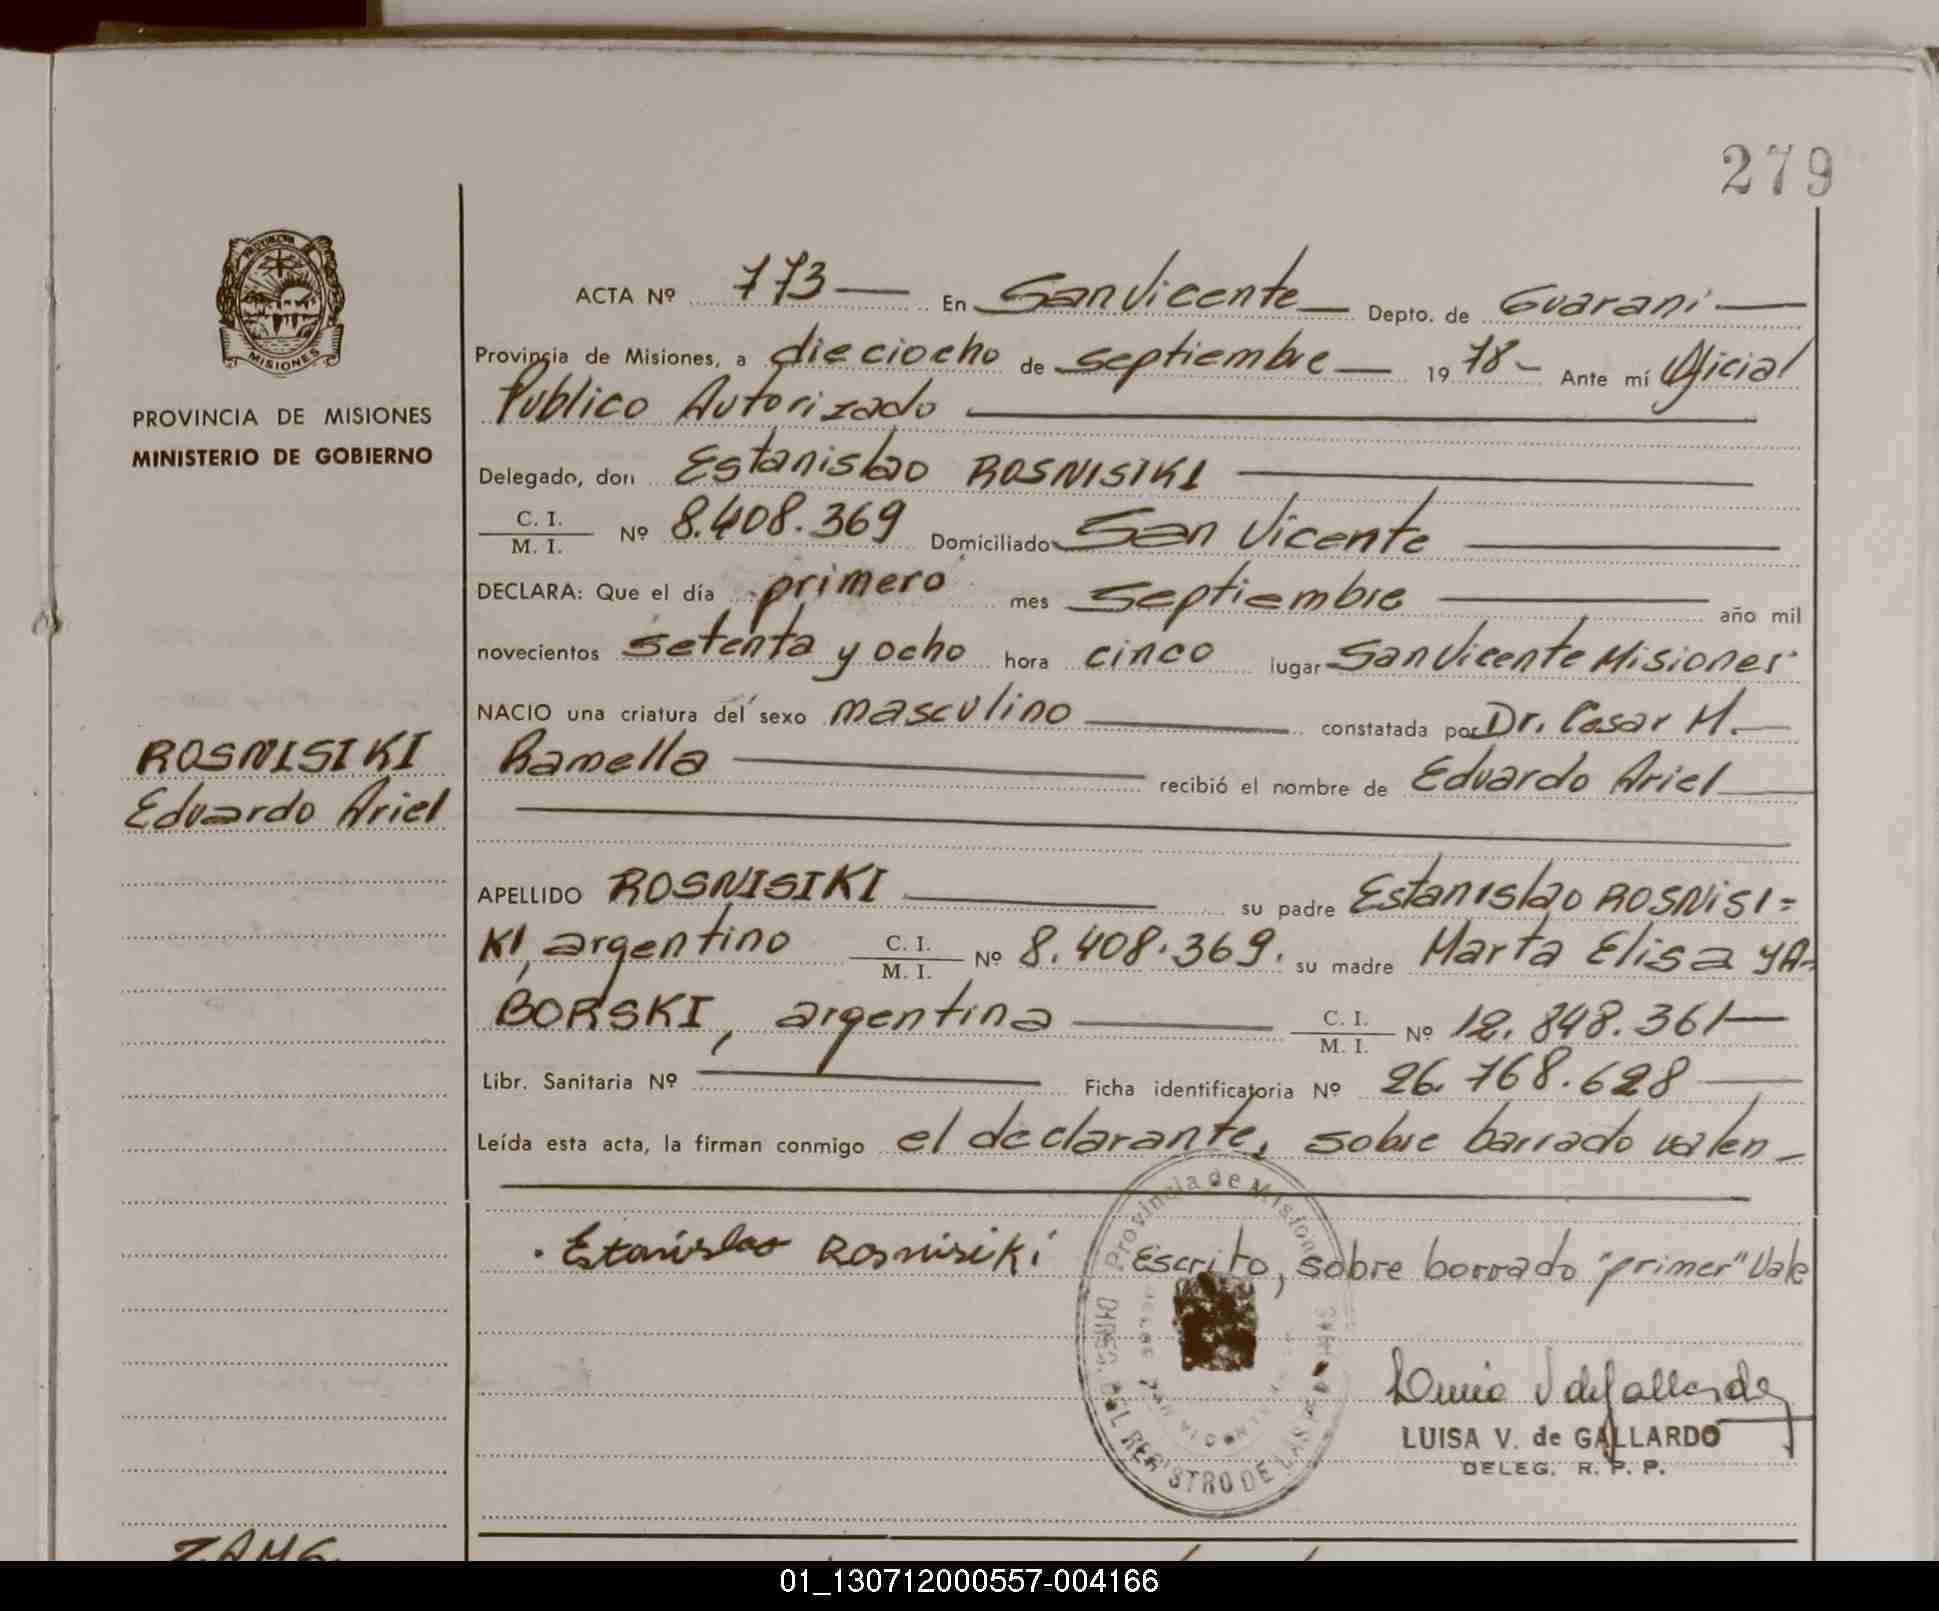 279
ACTA Nº 773 En San Vicente Depto. de Guaraní
Provincia de Misiones, a dieciocho de septiembre 19 78 Ante mí Oficial
Publico Autorizado
Delegado, don Estanislao ROSNISIKI
C. I.
M. I. Nº 8.408.369 Domiciliado San Vicente
DECLARA: Que el día primero mes Septiembre año mil
novecientos setenta y ocho hora cinco lugar San Vicente Misiones
NACIO una criatura del sexo masculino constatada por Dr. Cesar M.
Ramella recibió el nombre de Eduardo Ariel
APELLIDO ROSNISIKI su padre Estanislao ROSNISI=
KI, argentino C. I.
M. I. Nº 8.408.369. su madre Marta Elisa YA-
BORSKI, argentina C. I.
M. I. Nº 12.848.361
Libr. Sanitaria Nº Ficha identificatoria Nº 26.768.628
Leída esta acta, la firman conmigo el declarante, sobre barrado valen
Estanislao Rosnisiki Escrito, sobre borrado "primer" Vale
Provincia de Misiones
DEL REGISTRO DE LAS
LUISA V. de GALLARDO
DELEG. R. P. P.
MISIONES
PROVINCIA DE MISIONES
MINISTERIO DE GOBIERNO
ROSNISIKI
Eduardo Ariel
01_130712000557-004166